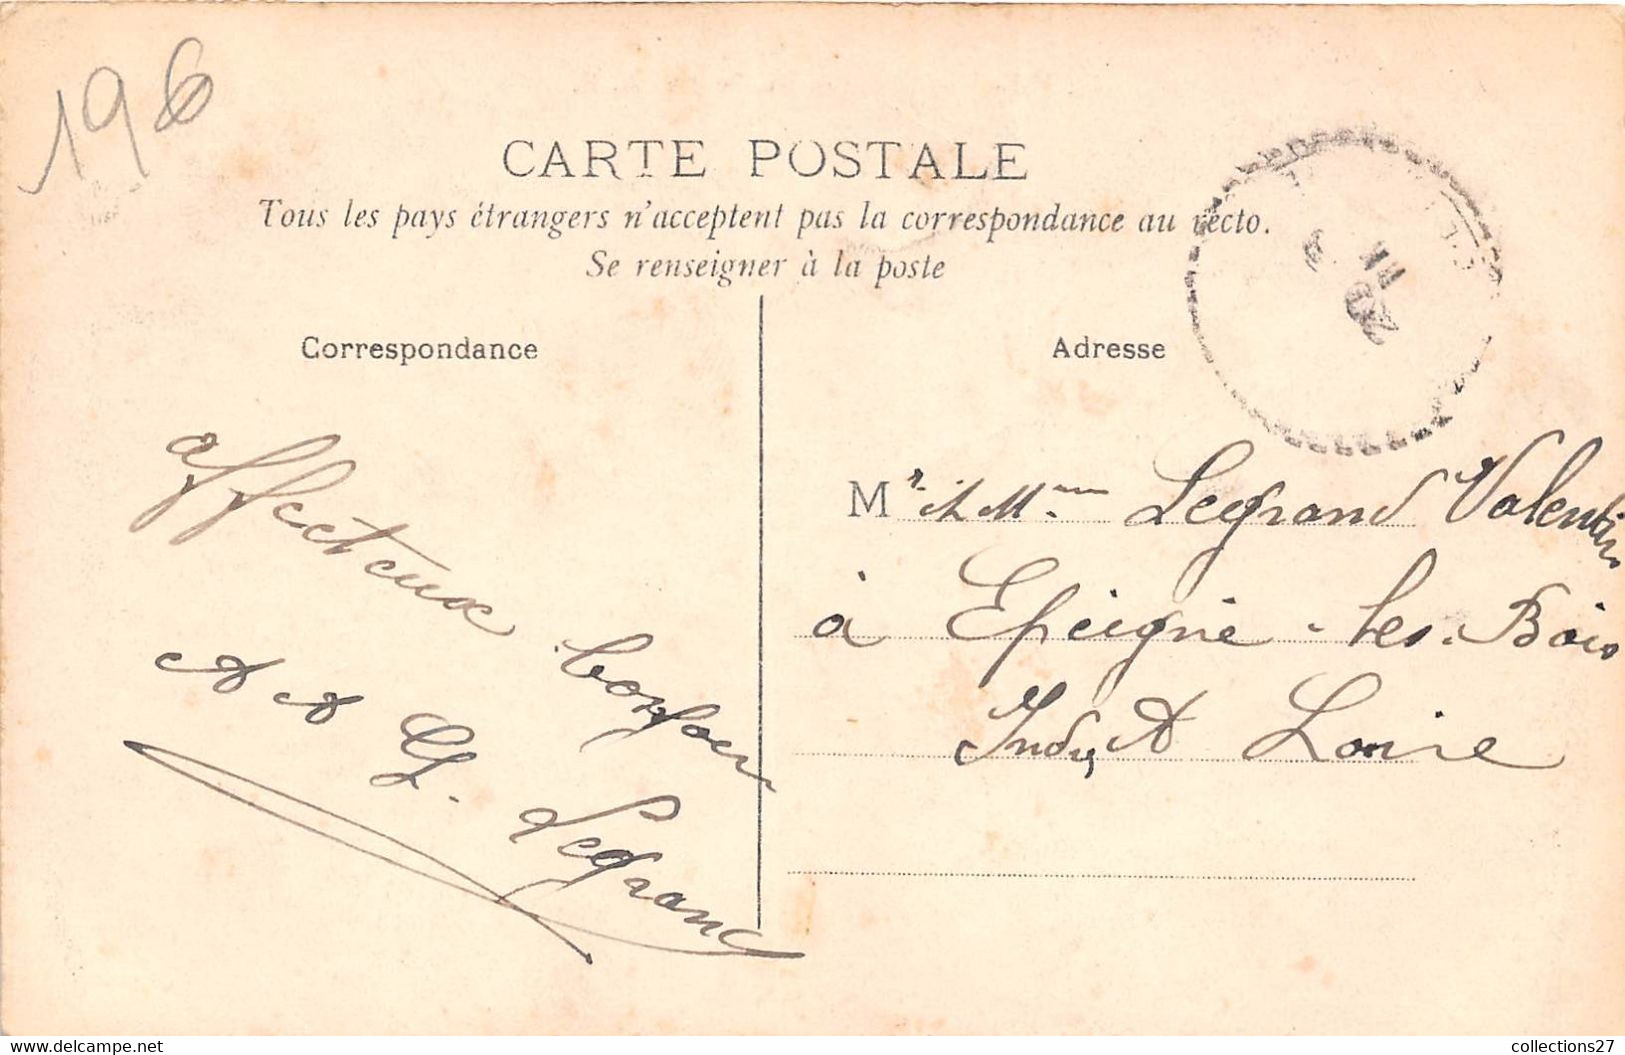 196
CARTE POSTALE
Tous les pays étrangers n'acceptent pas la correspondance au recto.
Se renseigner à la poste
Correspondance
Adresse
affectueux bonjour
A et G. Legrand
Mr et Mme Legrand Valentin
à Epeigné-les-Bois
Indre et Loire
collections27